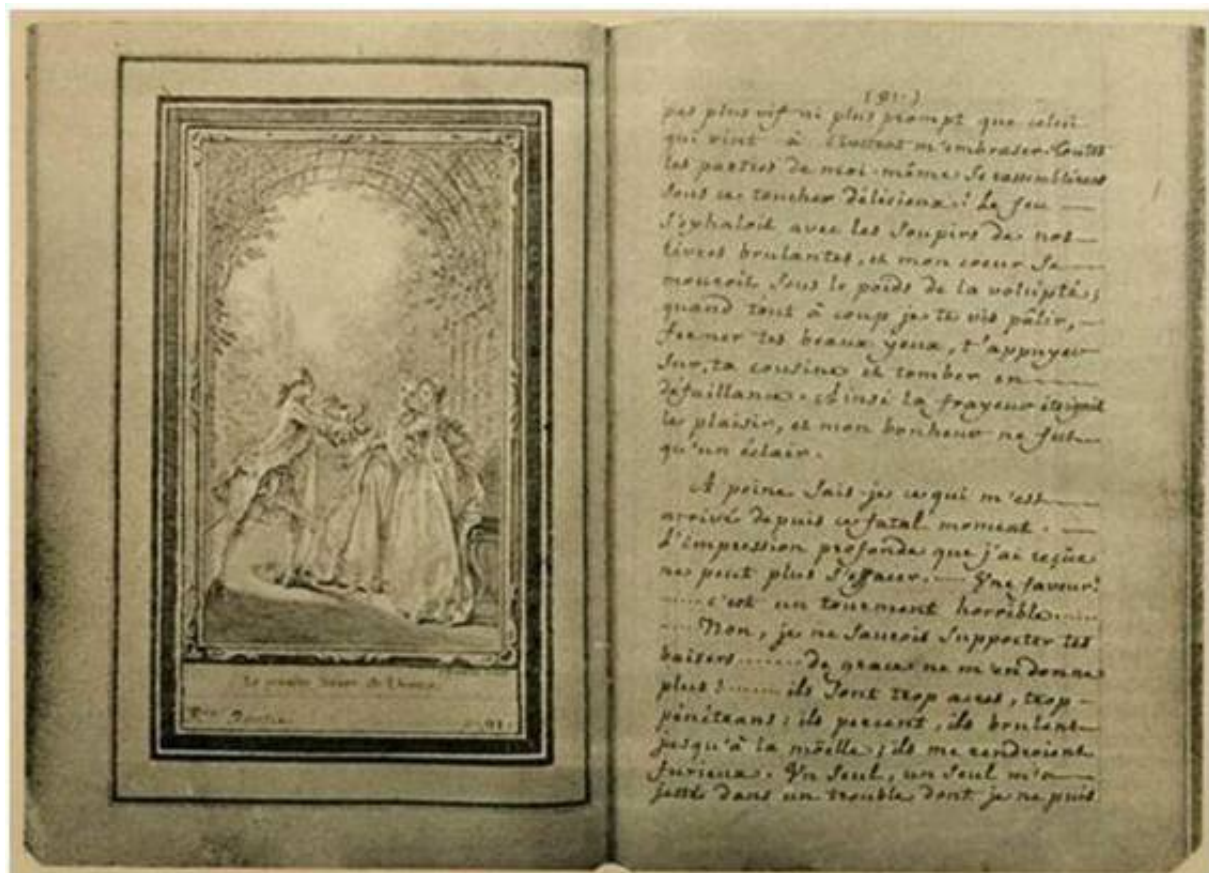 Le premier baiser de l'amour
Iere Partie
p. 91.
(91.)
pas plus vif ni plus prompt que celui
qui vint à l'instant m'embraser. Toutes
les parties de moi-même se rassemblèrent
sous ce toucher délicieux. Le feu
s'exhaloit avec les soupirs de nos
lèvres brulantes, et mon coeur se
mouroit sous le poids de la volupté;
quand tout à coup je te vis pâlir,
fermer tes beaux yeux, t'appuyer
sur ta cousine et tomber en
défaillance. Ainsi la frayeur éteignit
le plaisir, et mon bonheur ne fut
qu'un éclair.
A peine sais-je ce qui m'est
arrivé depuis ce fatal moment.
L'impression profonde que j'ai reçüe
ne peut plus s'effacer. — Une faveur?
...... c'est un tourment horrible......
...... Non, je ne saurois supporter tes
baisers ....... de grace ne m'en donne
plus! ...... ils sont trop acres, trop
pénétrans; ils percent, ils brulent
jusqu'à la moëlle; ils me rendroient
furieux. Un seul, un seul m'a
jetté dans un trouble dont je ne puis